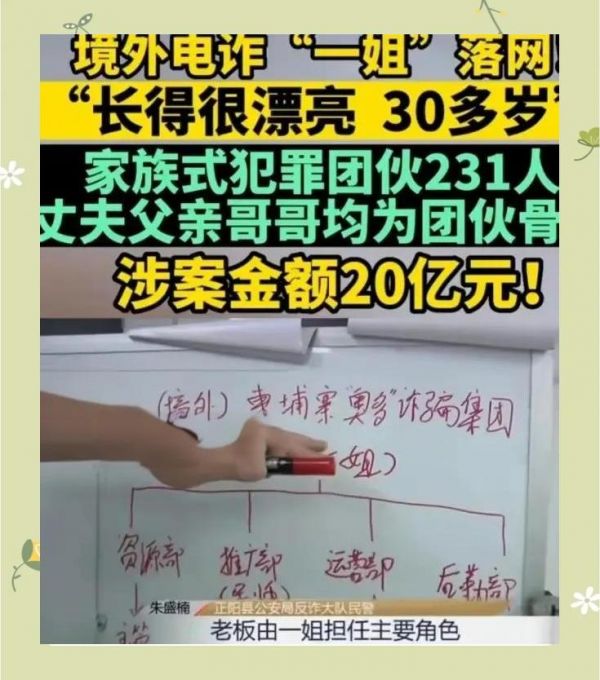 境外电诈“一姐”落网!
“长得很漂亮 30多岁”
家族式犯罪团伙231人
丈夫父亲哥哥均为团伙骨
涉案金额20亿元!
(境外)柬埔寨“奥多”诈骗集团
姐)
资源部 推广部 运营部 后勤部
朱盛楠 正阳县公安局反诈大队民警
老板由一姐担任主要角色